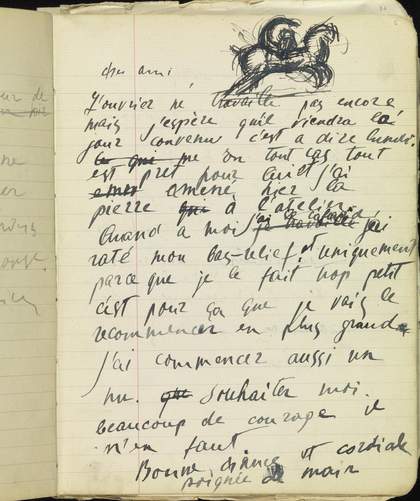 cher ami
L'ouvrier ne travaille pas encore
mais j'espère qu'il viendra le
jour convenu c'est a dire lundi.
en tout cas tout
est pret pour lui et j'ai
amené hier la
pierre à l'atelier.
Quand a moi j'ai
raté mon bas-relief, et uniquement
parce que je le fait trop petit
c'est pour ça que je vais le
recommencer en plus grand
j'ai commencer aussi un
nu. souhaiter moi
beaucoup de courage il
m'en faut
Bonne chance et cordiale
poignée de main